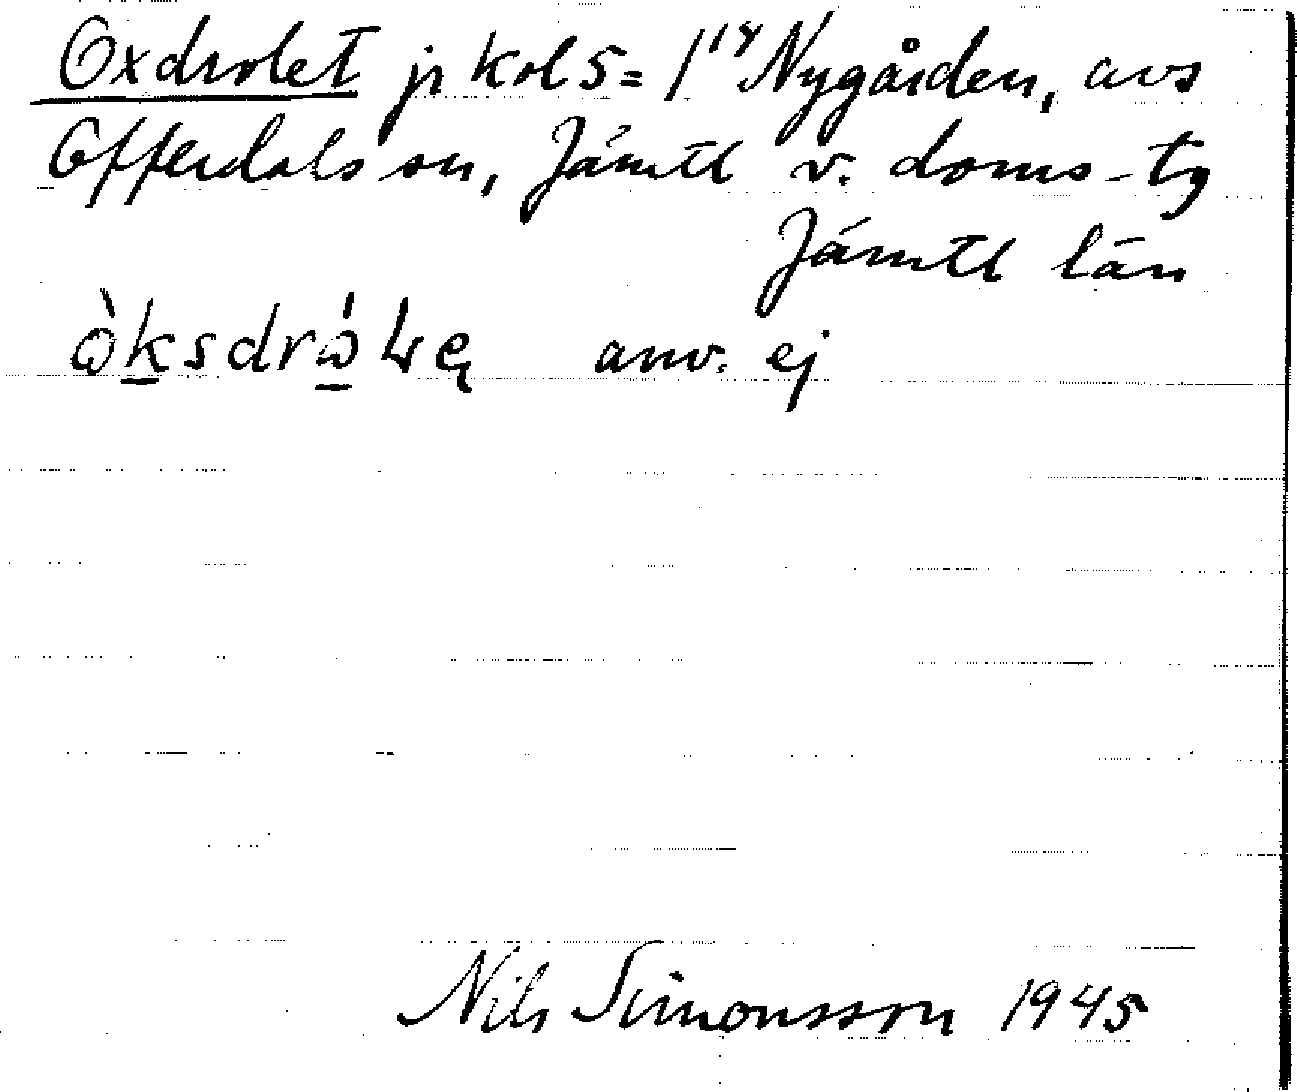 Oxdrolet jr kol 5 = 1¹⁸ Nygården, avs
Offerdals sn, Jämtl v. doms-tg
Jämtl län
ò̀ksdrówe̜ anv. ej
Nils Simonsson 1945